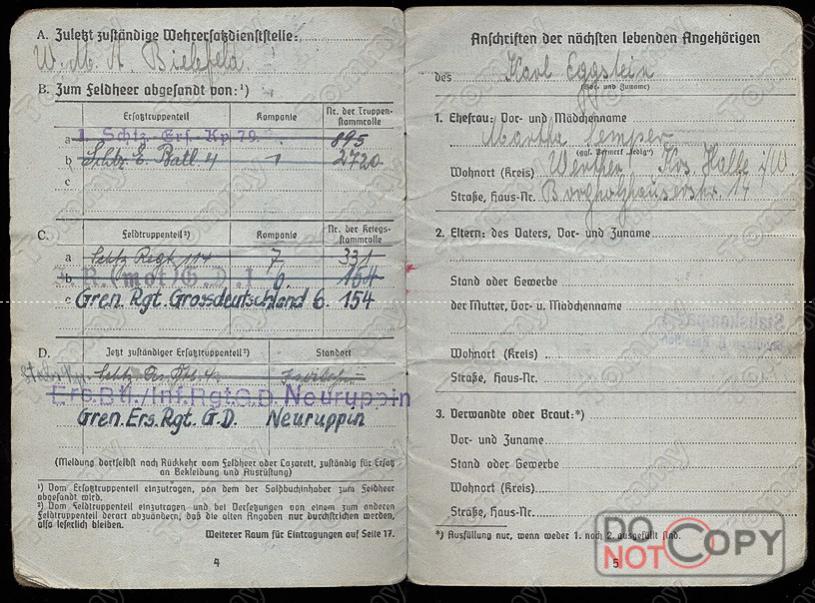 A. Zuletzt zuständige Wehrersatzdienststelle:
W. M. A. Bielefeld.
B. Zum Feldheer abgesandt von:¹)
Ersatztruppenteil Kompanie Nr. der Truppenstammrolle
a 1. Schtz.-Ers.-Kp. 79. 895
b Schtz. E. Batl. 4 1 2720
c
C. Feldtruppenteil²) Kompanie Nr. der Kriegsstammrolle
a Schtz Regt. 114 7 331
b I. R. (mot) G. D. 1 9. 154
c Gren. Rgt. Grossdeutschland 6. 154
D. Jetzt zuständiger Ersatztruppenteil²) Standort
Ers. Btl./Inf. Rgt. G.D. Neuruppin
Gren. Ers. Rgt. G. D. Neuruppin
(Meldung dortselbst nach Rückkehr vom Feldheer oder Lazarett, zuständig für Ersatz
an Bekleidung und Ausrüstung)
¹) Vom Ersatztruppenteil einzutragen, von dem der Soldbuchinhaber zum Feldheer
abgesandt wird.
²) Vom Feldtruppenteil einzutragen und bei Versetzungen von einem zum anderen
Feldtruppenteil derart abzuändern, daß die alten Angaben nur durchstrichen werden,
also leserlich bleiben.
Weiterer Raum für Eintragungen auf Seite 17.
4
Anschriften der nächsten lebenden Angehörigen
des Karl Eggstein
(Vor- und Zuname)
1. Ehefrau: Vor- und Mädchenname
Martha Semper
(ggf. Vermerk „ledig“)
Wohnort (Kreis) Werther Krs. Halle i/W.
Straße, Haus-Nr. Borgholzhauserstr. 14
2. Eltern: des Vaters, Vor- und Zuname
Stand oder Gewerbe
der Mutter, Vor- u. Mädchenname
Wohnort (Kreis)
Straße, Haus-Nr.
3. Verwandte oder Braut:*)
Vor- und Zuname
Stand oder Gewerbe
Wohnort (Kreis)
Straße, Haus-Nr.
*) Ausfüllung nur, wenn weder 1. noch 2. ausgefüllt sind.
5
DO NOT COPY
Tommy